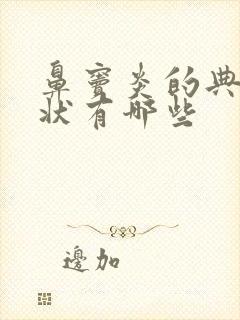 鼻窦炎的典
状有哪些
邊加